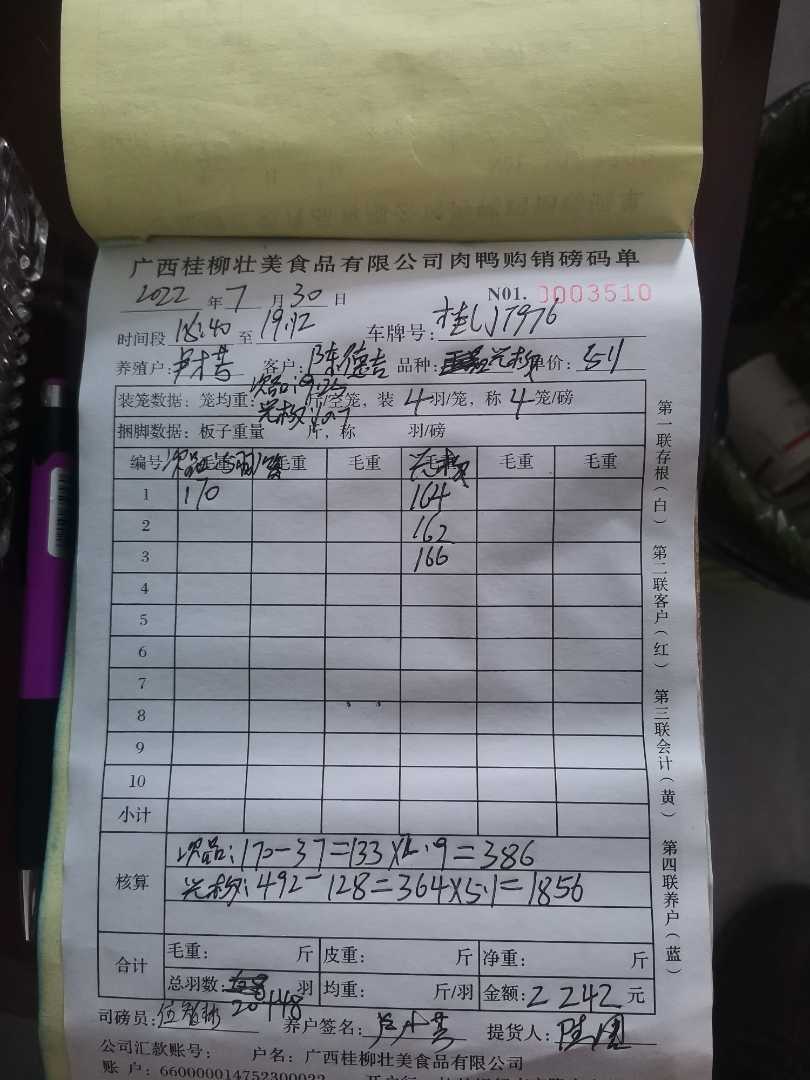 广西桂柳壮美食品有限公司肉鸭购销磅码单
2022年7月30日 N01. 0003510
时间段 18:40 至 19:12 车牌号: 桂J7976
养殖户: 客户: 陈德吉 品种: 单价: 5.1
装笼数据: 笼均重: 次品:9.25 斤/空笼, 装 4 羽/笼, 称 4 笼/磅
捆脚数据: 板子重量 斤, 称 羽/磅
编号 次品 毛重 毛重 毛重 毛重 毛重 毛重
1 170 164
2 162
3 166
4
5
6
7
8
9
10
小计
核算 次品: 170-37=133×2.9=386
492-128=364×5.1=1856
合计 毛重: 斤 皮重: 斤 净重: 斤
总羽数: 20+48 羽 均重: 斤/羽 金额: 2242 元
司磅员: 养户签名: 提货人:
公司汇款账号: 户名: 广西桂柳壮美食品有限公司
账户: 660000014752300022
第一联存根(白) 第二联客户(红) 第三联会计(黄) 第四联养户(蓝)